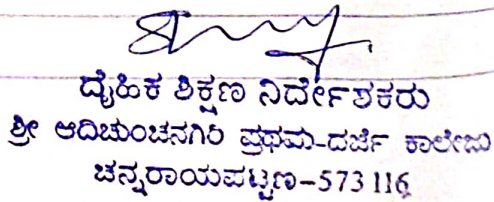 ದೈಹಿಕ ಶಿಕ್ಷಣ ನಿರ್ದೇಶಕರು
ಶ್ರೀ ಆದಿಚುಂಚನಗಿರಿ ಪ್ರಥಮ-ದರ್ಜೆ ಕಾಲೇಜು
ಚನ್ನರಾಯಪಟ್ಟಣ-573 116